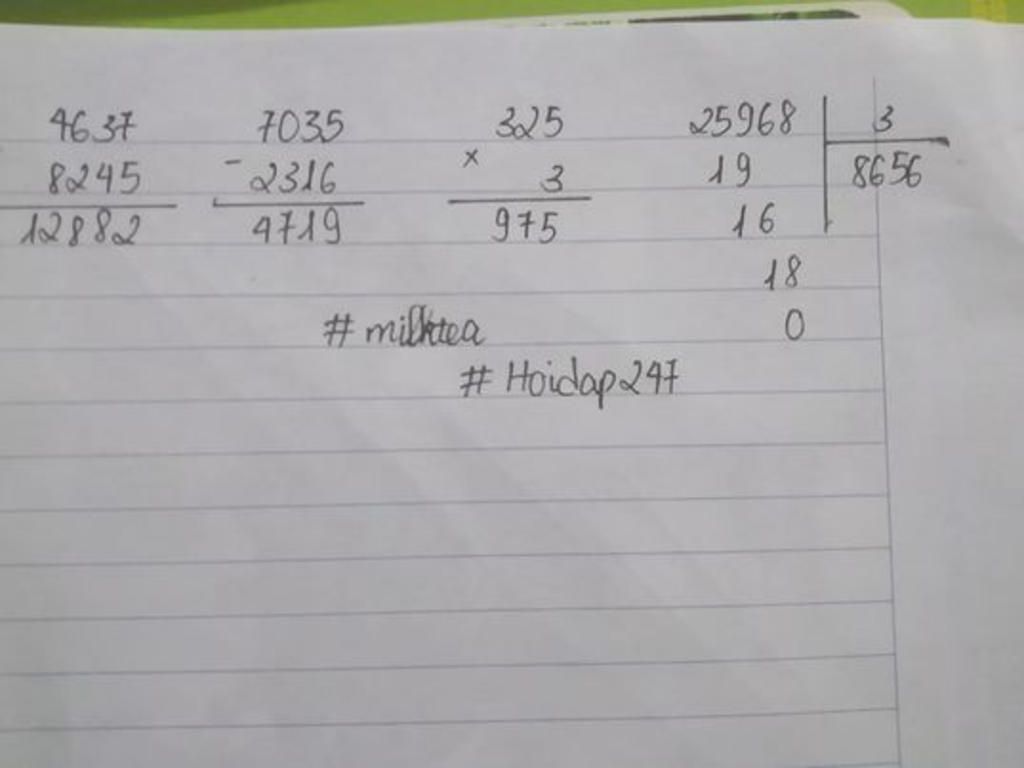 4637 7035 325 25968 3
8245 - 2316 × 3 19 8656
12882 4719 975 16
18
# milktea 0
# Hoidap247